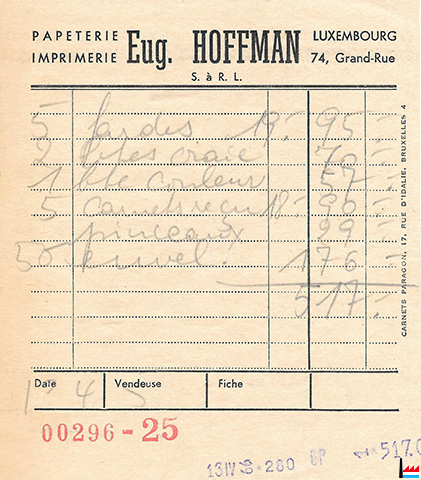 PAPETERIE Eug. HOFFMAN LUXEMBOURG
IMPRIMERIE 74, Grand-Rue
S. à R. L.
5 fardes 19.- 95.-
2 btes craie 70.-
1 bte couleur 57.-
5 carnets reçu 18.- 90.-
pinceaux 29.-
50 envel. 176.-
517.-
CARNETS PARAGON, 17, RUE D'IDALIE, BRUXELLES 4
Date Vendeuse Fiche
1 4 5
00296 - 25
517.0